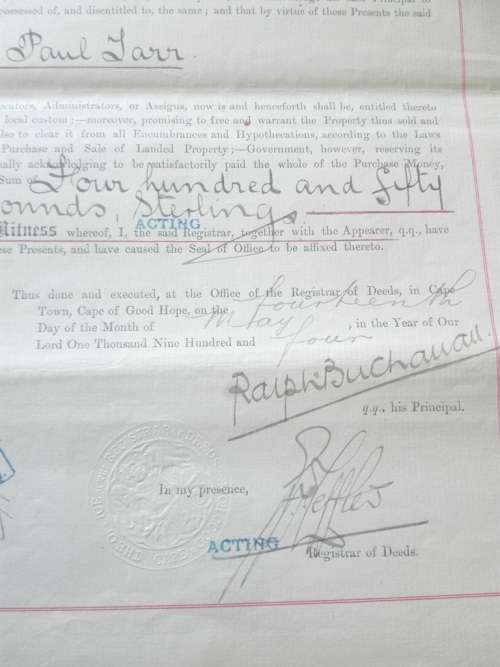 possessed of, and disentitled to, the same; and that by virtue of these Presents the said
Paul Tarr
cutors, Administrators, or Assigns, now is and henceforth shall be, entitled thereto
local custom;—moreover, promising to free and warrant the Property thus sold and
also to clear it from all Encumbrances and Hypothecations, according to the Laws
Purchase and Sale of Landed Property;—Government, however, reserving its
ually acknowledging to be satisfactorily paid the whole of the Purchase Money,
Sum of Four hundred and fifty
ounds, Sterling,
ACTING
Witness whereof, I, the said Registrar, together with the Appearer, q.q., have
se Presents, and have caused the Seal of Office to be affixed thereto.
Thus done and executed, at the Office of the Registrar of Deeds, in Cape
Town, Cape of Good Hope, on the fourteenth
Day of the Month of May, in the Year of Our
Lord One Thousand Nine Hundred and four
Ralph Buchanan.
q.q., his Principal.
In my presence,
ACTING
Registrar of Deeds.